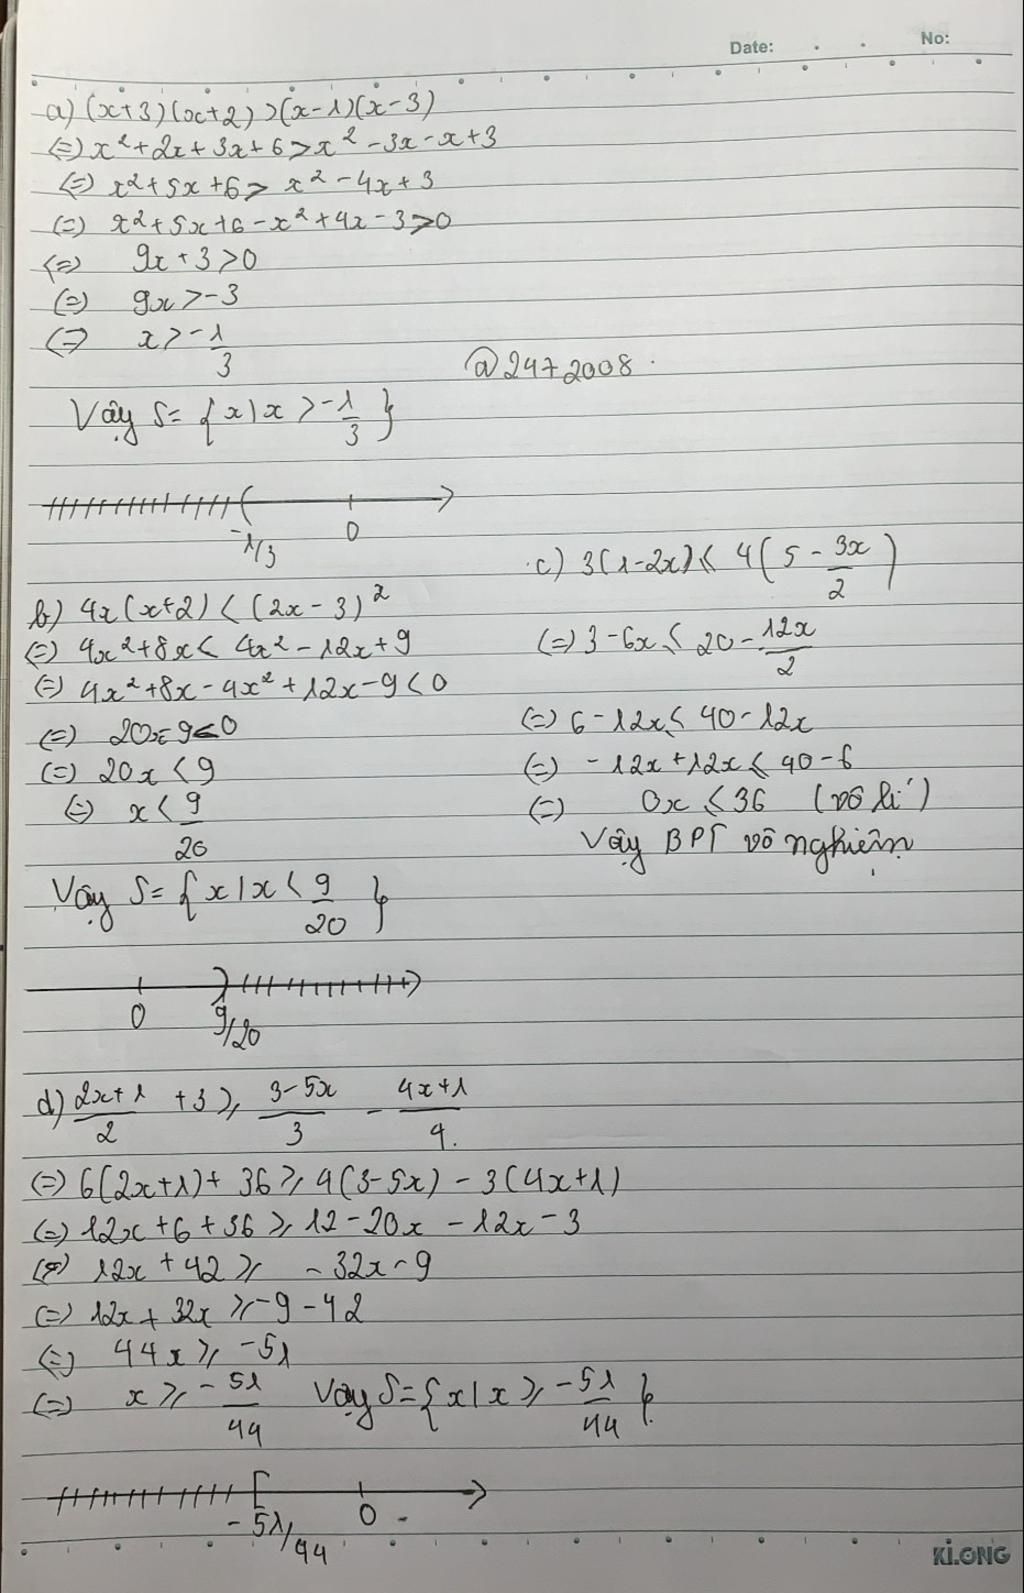 Date: . . No:
a) (x+3)(x+2) > (x-1)(x-3)
(=) x²+2x+3x+6 > x²-3x-x+3
(=) x²+5x+6 > x²-4x+3
(=) x²+5x+6-x²+4x-3>0
(=) 9x+3>0
(=) 9x>-3
(=) x>-1/3
@2472008.
Vậy S={x|x>-1/3}
-1/3 0
b) 4x(x+2)<(2x-3)²
(=) 4x²+8x<4x²-12x+9
(=) 4x²+8x-4x²+12x-9<0
(=) 20x-9<0
(=) 20x<9
(=) x<9/20
Vậy S={x|x<9/20}
0 9/20
c) 3(1-2x)≤4(5-3x/2)
(=) 3-6x≤20-12x/2
(=) 6-12x≤40-12x
(=) -12x+12x≤40-6
(=) 0x≤36 (vô lí)
Vậy BPT vô nghiệm
d) 2x+1/2 +3 ≥ 3-5x/3 - 4x+1/4.
(=) 6(2x+1)+36≥4(3-5x)-3(4x+1)
(=) 12x+6+36≥12-20x-12x-3
(=) 12x+42≥-32x-9
(=) 12x+32x≥-9-42
(=) 44x≥-51
(=) x≥-51/44 Vậy S={x|x≥-51/44}.
-51/44 0
KLONG